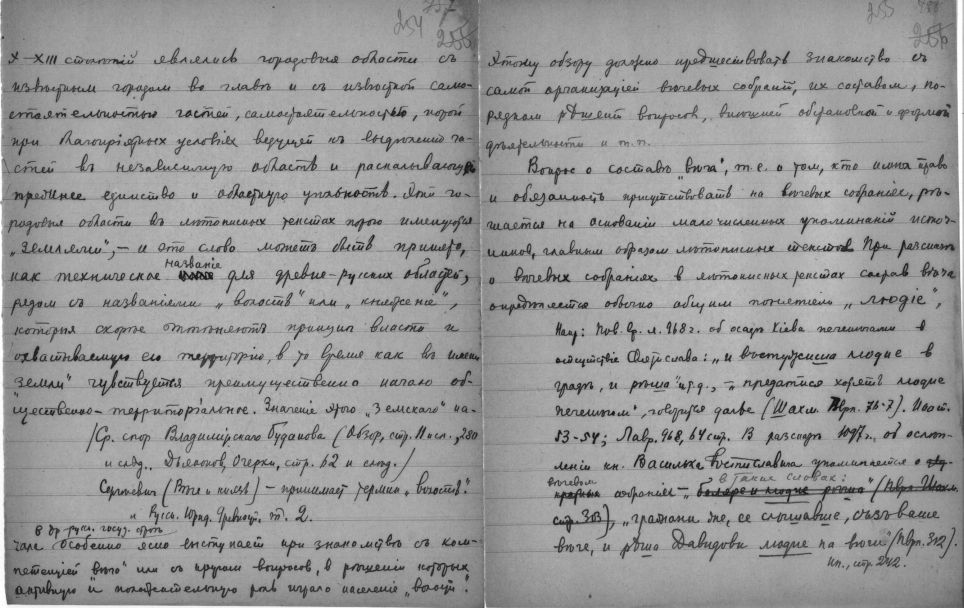 254 255
X–XIII столѣтій являлись городовыя области съ
извѣстнымъ городомъ во главѣ и съ извѣстной само-
стоятельностью частей, самостоятельностью, порой
при благопріятныхъ условіяхъ ведущей къ выдѣленію ча-
стей въ независимую область и раскалывающей
прежнее единство и областную цѣльность. Эти го-
родовыя области въ лѣтописныхъ текстахъ порою именуются
„землями", – и это слово можетъ быть принято,
названіе
какъ техническое для древне-русскихъ областей,
рядомъ съ названіями „волость" или „княженіе",
которыя скорѣе оттѣняютъ принципъ власти и
охватываемую его территорію, въ то время какъ въ имени
„земли" чувствуется преимущественно начало об-
щественно-территоріальное. Значеніе этого „Земскаго" на-
/Ср. спор. Владимірскаго Буданова (Обзоръ, стр. 11 и сл., 280
и слѣд., Дьяконовъ, Очерки, стр. 62 и слѣд./
Сергѣевич (Вѣче и князь) – принимает термин „волость".
и Русск. Юрид. Древност. т. 2.
в др. русск. госуд. строѣ
чала особенно ясно выступаетъ при знакомствѣ съ ком-
петенціей вѣча или съ кругомъ вопросовъ, в рѣшеніи которыхъ
активную и положительную роль играло населеніе „волости".
255
Этому обзору должно предшествовать знакомство съ
самой организаціей вѣчевых собраній, их составом, по-
рядком рѣшенія вопросов, внѣшней обстановкой и формой
дѣятельности и т.п.
Вопрос о составѣ „вѣча", т.е. о том, кто имѣл право
и обязанность присутствовать на вѣчевых собраніях, рѣ-
шается на основаніи малочисленных упоминаній источ-
ников, главным образом лѣтописных текстов. При разсказѣ
о вѣчевых собраніях в лѣтописных текстах состав вѣча
опредѣляется обычно общим понятіем „людіе",
Напр: Пов. вр. л. 968 г. об осадѣ Кіева печенѣгами в
отсутствіе Святослава: „и въстужиша людие в
градѣ, и рѣша" и т.д., – „предатися хотятъ людие
печенѣгом", говорится далѣе (Шахм. Пврл. 76-7). Ипат.
53-54; Лавр. 968, 64 стр. В разсказѣ 1097 г. об ослѣп-
леніи кн. Василька Ростиславича упоминается о
в таких словах:
вѣчевом собраніи – „боляре и людие рѣша" (Пврл. Шахм.
стр. 333), „гражани же, се слышавше, съзваше
вѣче, и рѣша Давыдови людие на вѣчи" (Пврл. 342).
Ип., стр. 242.